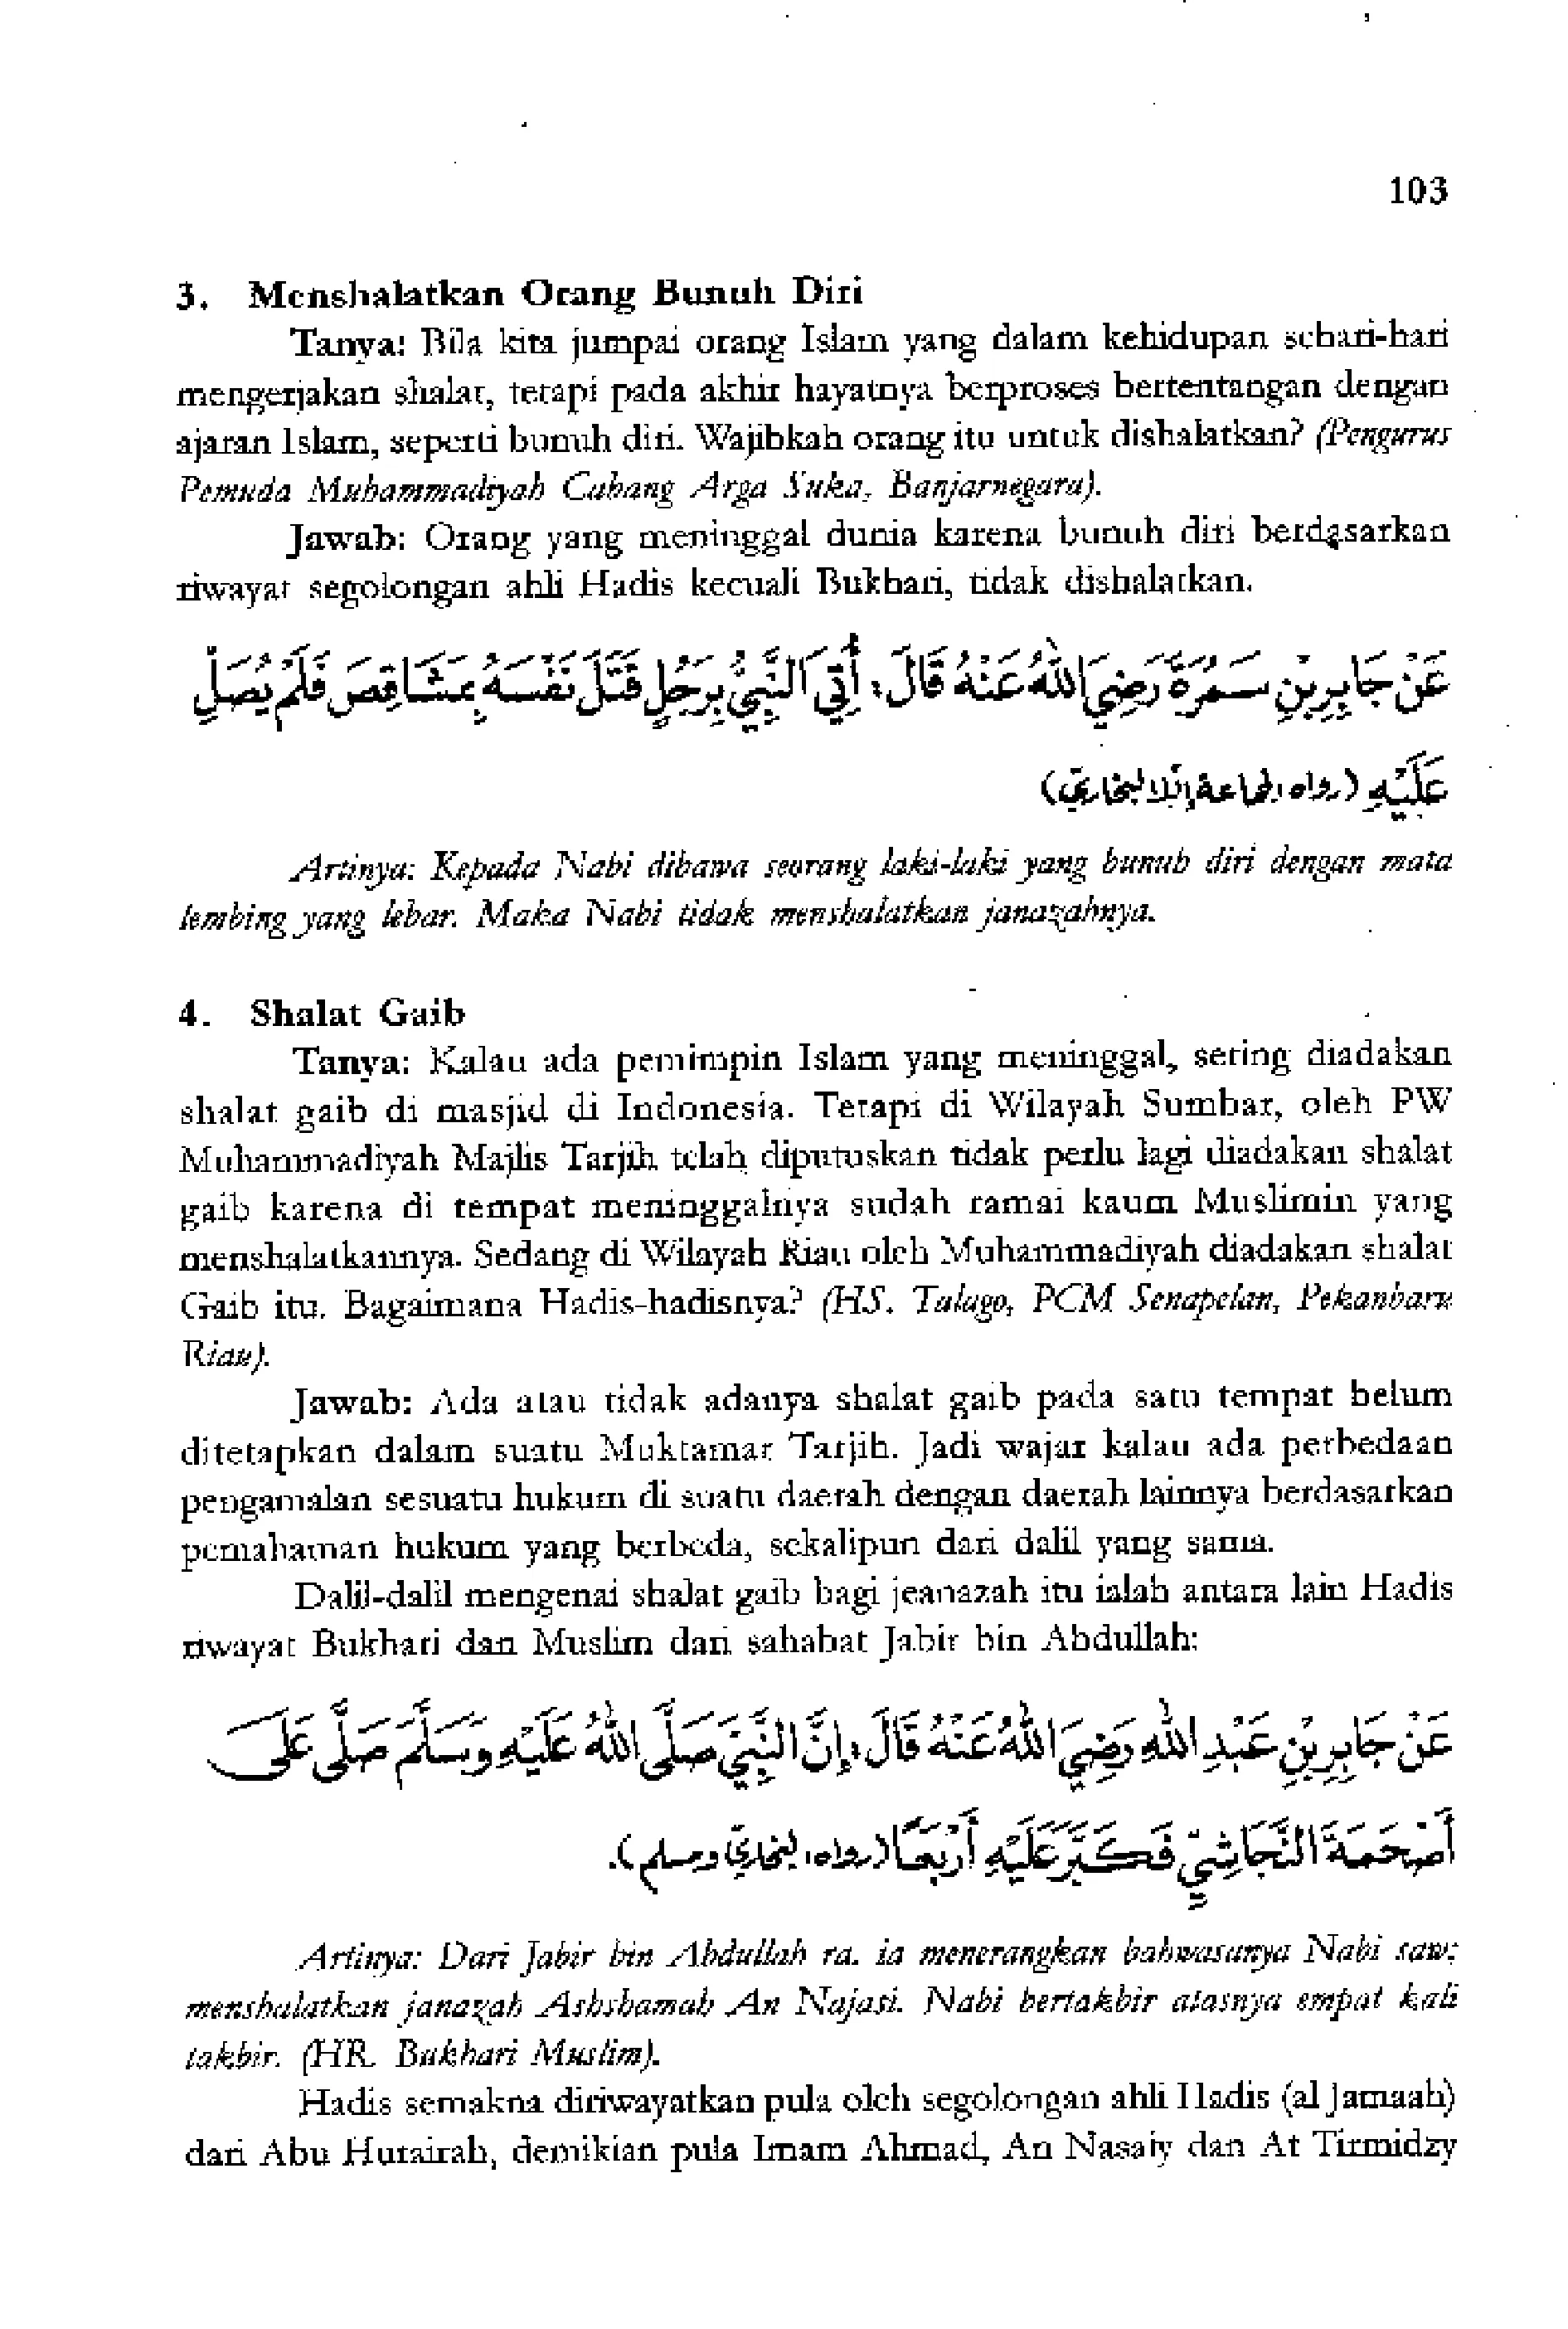 103
3. Menshalatkan Orang Bunuh Diri
Tanya: Bila kita jumpai orang Islam yang dalam kehidupan sehari-hari
mengerjakan shalat, tetapi pada akhir hayatnya berproses bertentangan dengan
ajaran Islam, seperti bunuh diri. Wajibkah orang itu untuk dishalatkan? (Pengurus
Pemuda Muhammadiyah Cabang Arga Suka, Banjarnegara).
Jawab: Orang yang meninggal dunia karena bunuh diri berdasarkan
riwayat segolongan ahli Hadis kecuali Bukhari, tidak dishalatkan.
عَنْ جَابِرِبْنِ سَمُرَةَ رَضِيَ اللّٰهُ عَنْهُ قَالَ، أُتِيَ النَّبِيُّ بِرَجُلٍ قَتَلَ نَفْسَهُ بِمَشَاقِصَ فَلَمْ يُصَلِّ
عَلَيْهِ (رواه الجماعة إلا البخاري)
Artinya: Kepada Nabi dibawa seorang laki-laki yang bunuh diri dengan mata
lembing yang lebar. Maka Nabi tidak menshalatkan janazahnya.
4. Shalat Gaib
Tanya: Kalau ada pemimpin Islam yang meninggal, sering diadakan
shalat gaib di masjid di Indonesia. Tetapi di Wilayah Sumbar, oleh PW
Muhammadiyah Majlis Tarjih telah diputuskan tidak perlu lagi diadakan shalat
gaib karena di tempat meninggalnya sudah ramai kaum Muslimin yang
menshalatkannya. Sedang di Wilayah Riau oleh Muhammadiyah diadakan shalat
Gaib itu. Bagaimana Hadis-hadisnya? (HS. Talago, PCM Senapelan, Pekanbaru
Riau).
Jawab: Ada atau tidak adanya shalat gaib pada satu tempat belum
ditetapkan dalam suatu Muktamar Tarjih. Jadi wajar kalau ada perbedaan
pengamalan sesuatu hukum di suatu daerah dengan daerah lainnya berdasarkan
pemahaman hukum yang berbeda, sekalipun dari dalil yang sama.
Dalil-dalil mengenai shalat gaib bagi jeanazah itu ialah antara lain Hadis
riwayat Bukhari dan Muslim dari sahabat Jabir bin Abdullah:
عَنْ جَابِرِبْنِ عَبْدِ اللّٰهِ رَضِيَ اللّٰهُ عَنْهُ قَالَ، إِنَّ النَّبِيَّ صَلَّى اللّٰهُ عَلَيْهِ وَسَلَّمَ صَلَّى عَلَى
أَصْحَمَةَ النَّجَاشِيِّ فَكَبَّرَ عَلَيْهِ أَرْبَعًا (رواه البخاري ومسلم).
Artinya: Dari Jabir bin Abdullah ra. ia menerangkan bahwasanya Nabi saw:
menshalatkan janazah Ashshamah An Najasi. Nabi bertakbir atasnya empat kali
takbir. (HR. Bukhari Muslim).
Hadis semakna diriwayatkan pula oleh segolongan ahli Hadis (al Jamaah)
dari Abu Hurairah, demikian pula Imam Ahmad, An Nasaiy dan At Tirmidzy